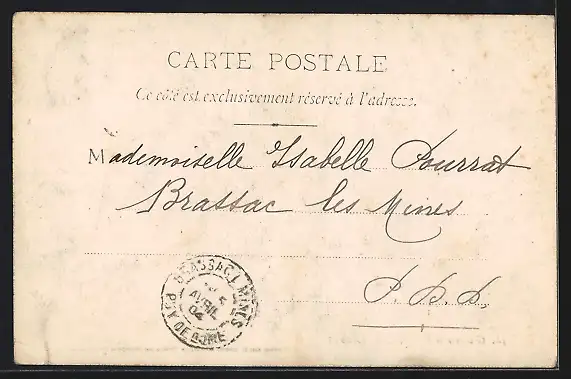 CARTE POSTALE
Ce côté est exclusivement réservé à l'adresse.
Mademoiselle Isabelle Pourrat
Brassac les Mines
P. D. D.
BRASSAC L MINES
AVRIL
04
PUY DE DOME